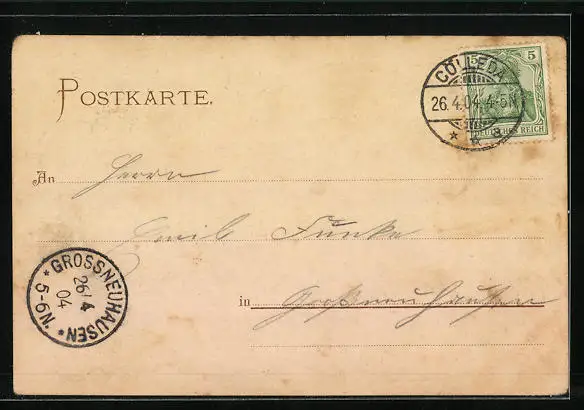 POSTKARTE.
5 5
DEUTSCHES REICH
CÖLLEDA
26.4.04.4-5N
* * a
An Herrn
Emil Funke
in Großneuhausen
* GROSSNEUHAUSEN *
26 4
04
5-6N.